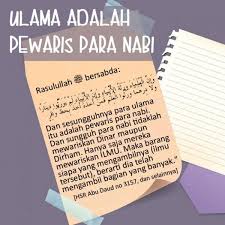 ULAMA ADALAH
PEWARIS PARA NABI
Rasulullah ﷺ bersabda:
"Dan sesungguhnya para ulama
itu adalah pewaris para nabi.
Dan para nabi tidaklah
mewariskan Dinar maupun
Dirham. Hanya saja mereka
mewariskan ILMU. Maka barang
siapa yang mengambilnya (ilmu
tersebut), berarti dia telah
mengambil bagian yang banyak."
[HSR Abu Daud no 3157, dan selainnya]